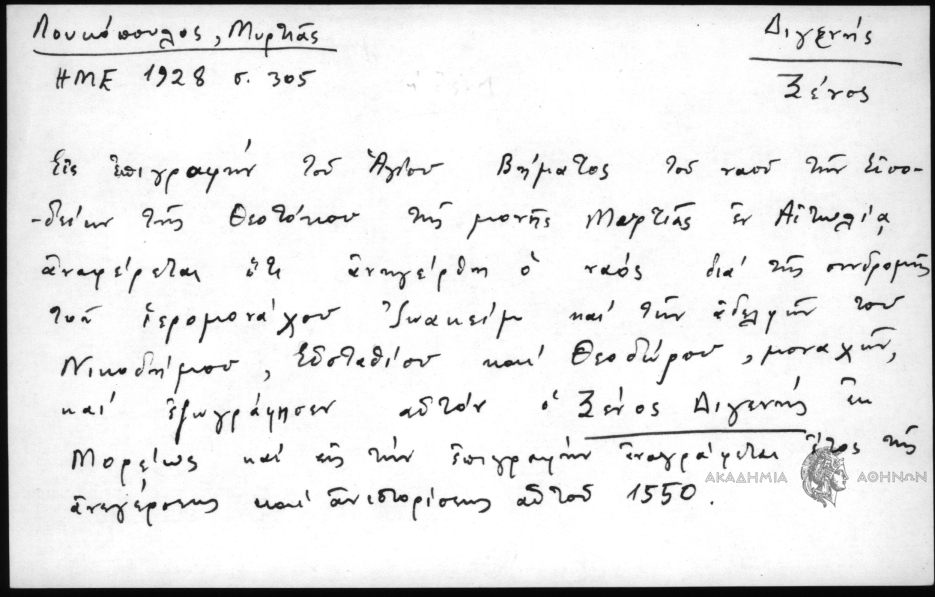 Λουκόπουλος, Μυρτιάς
Διγενής
ΗΜΕ 1928 σ. 305
Ξένος
Εἰς ἐπιγραφὴν τοῦ Ἁγίου Βήματος τοῦ ναοῦ τῶν Εἰσο-
-δείων τῆς Θεοτόκου τῆς μονῆς Μυρτιᾶς ἐν Αἰτωλίᾳ
ἀναφέρεται ὅτι ἀνηγέρθη ὁ ναός διά τῆς συνδρομῆς
τοῦ ἱερομονάχου Ἰωακείμ καί τῶν ἀδελφῶν του
Νικοδήμου, Εὐσταθίου καί Θεοδώρου, μοναχῶν,
καί ἐζωγράφησεν αὐτόν ὁ Ξένος Διγενής ἐκ
Μορέως καί εἰς τήν ἐπιγραφήν ἀναγράφεται ἔτος τῆς
ἀνεγέρσης καί ἀνιστορίσεης αὐτοῦ 1550.
ΑΚΑΔΗΜΙΑ ΑΘΗΝΩΝ